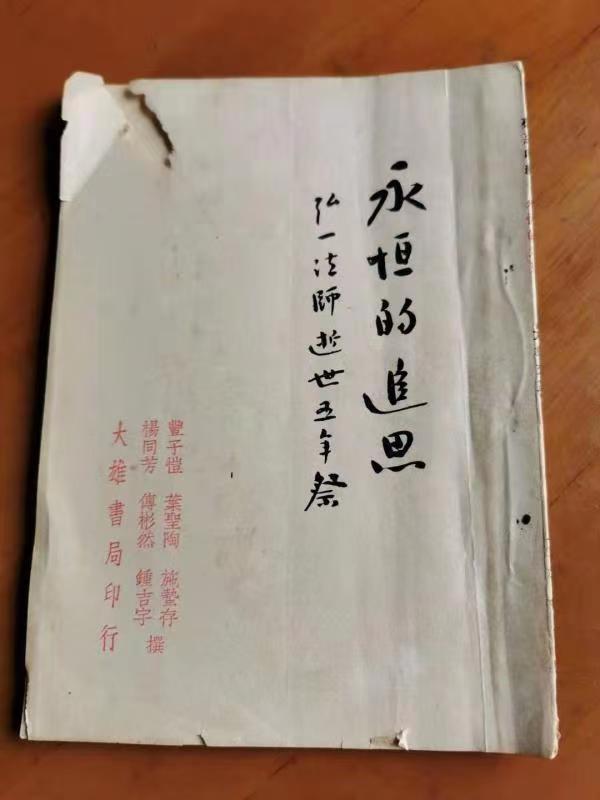 永恒的追思
弘一法師逝世五年祭
豐子愷 葉聖陶 施蟄存
楊同芳 傅彬然 鍾吉宇 撰
大雄書局印行